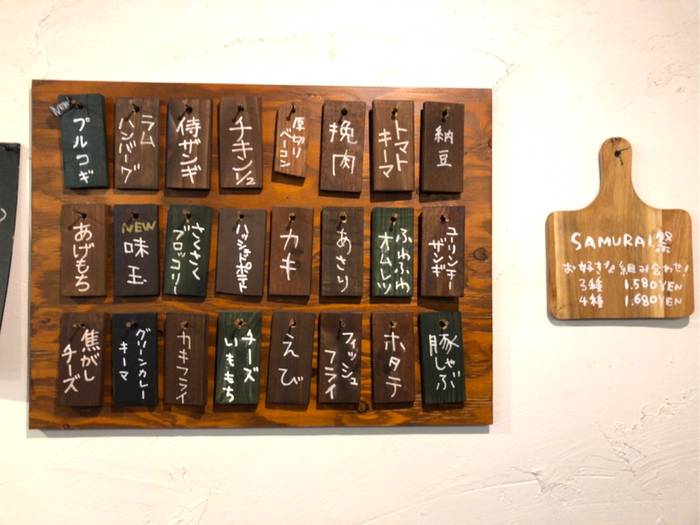 NEW
プルコギ
ラム
ハンバーグ
侍ザンギ
チキン1/2
厚切り
ベーコン
挽肉
トマト
キーマ
納豆
あげもち
NEW
味玉
さくさく
ブロッコリー
ハッシュドポテト
カキ
あさり
ふわふわ
オムレツ
ユーリンチー
ザンギ
焦がし
チーズ
グリーンカレー
キーマ
カキフライ
チーズ
いももち
えび
フィッシュ
フライ
ホタテ
豚しゃぶ
SAMURAI祭
お好きな組み合わせ!
3種 1.580YEN
4種 1.680YEN